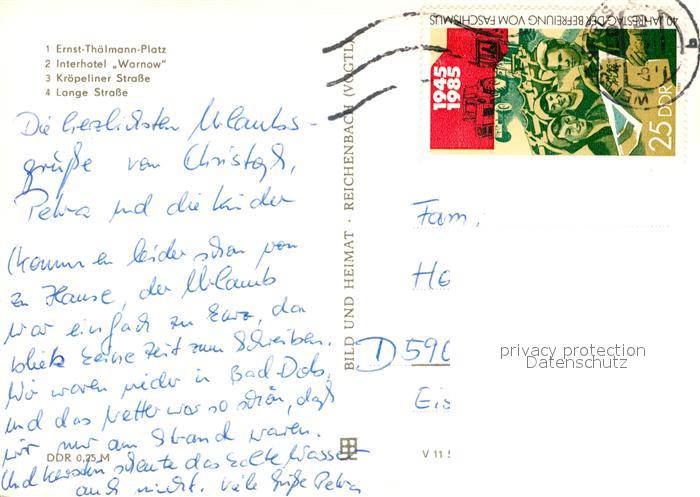 1 Ernst-Thälmann-Platz
2 Interhotel „Warnow"
3 Kröpeliner Straße
4 Lange Straße
Die herzlichsten Urlaubs-
grüße von Christoph,
Petra und die Kinder
(kommen leider schon von
zu Hause, der Urlaub
war einfach zu kurz, da
blieb keine Zeit zum Schreiben.
Wir waren wieder in Bad-Dob.
und das Wetter war so schön, daß
wir nur am Strand waren.
Und Kersten scheute das kalte Wasser
auch nicht. Viele Grüße Petra
DDR 0,25 M
BILD UND HEIMAT · REICHENBACH (VOGTL
V 11
40. JAHRESTAG DER BEFREIUNG VOM FASCHISMUS
1945
1985
25 DDR
Fam.
Ho
D 590
Eis
privacy protection
Datenschutz